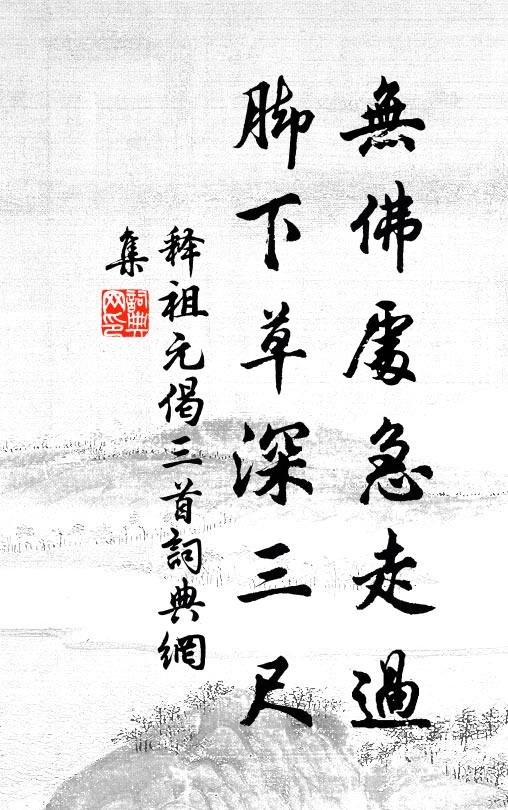 無佛處急走過
脚下草深三尺
释祖元偈三首詞典網
集
詞典
网印